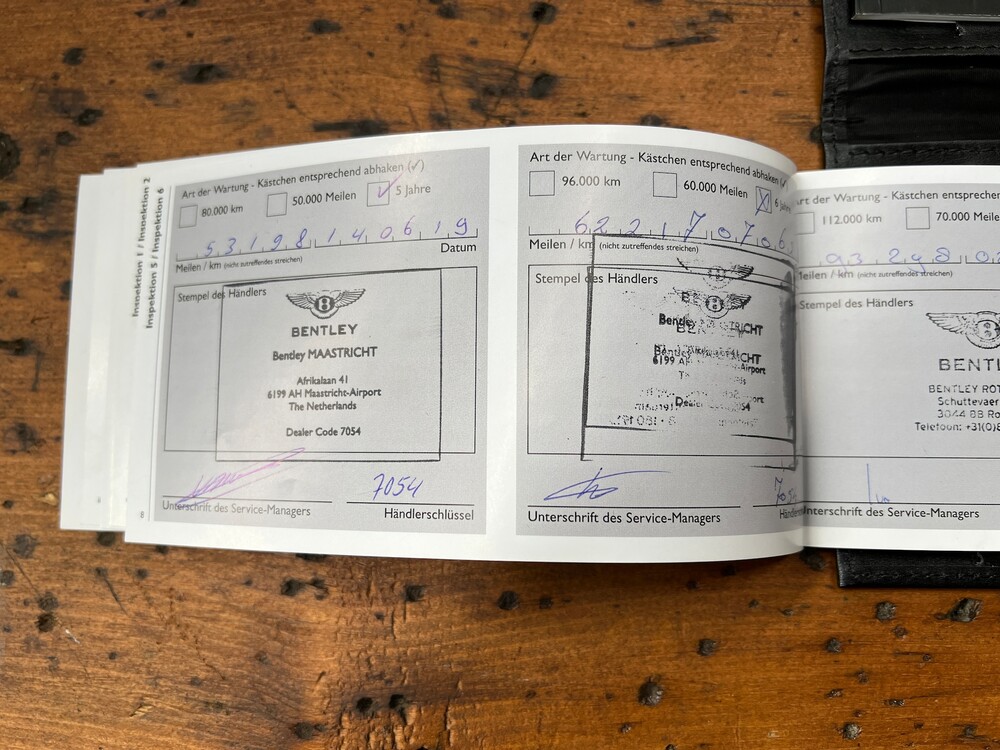 Inspektion 1 / Inspektion 2
Inspektion 5 / Inspektion 6
Art der Wartung - Kästchen entsprechend abhaken (✓)
80.000 km
50.000 Meilen
5 Jahre
53198 140619
Meilen / km (nicht zutreffendes streichen)
Datum
Stempel des Händlers
B
BENTLEY
Bentley MAASTRICHT
Afrikalaan 41
6199 AH Maastricht-Airport
The Netherlands
Dealer Code 7054
7054
Unterschrift des Service-Managers
Händlerschlüssel
8
Art der Wartung - Kästchen entsprechend abhaken (✓)
96.000 km
60.000 Meilen
6 Jahre
62217 0706
Meilen / km (nicht zutreffendes streichen)
Stempel des Händlers
B
Bentley
6199
Airport
Dealer
Unterschrift des Service-Managers
Art der Wartung - Kästchen entsprechen
112.000 km
70.000 Meile
Meilen / km (nicht zutreffendes streichen)
Stempel des Händlers
BENTL
BENTLEY ROT
Schuttevaer
3044 BB Ro
Telefoon: +31(0)8
Unterschrift des Service-Managers